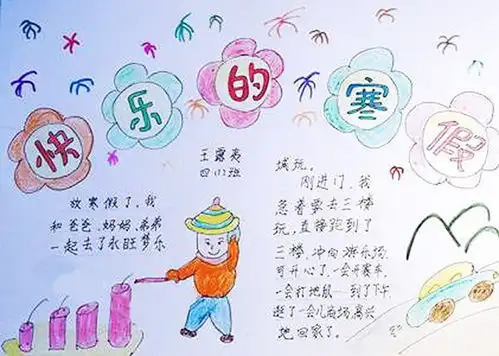 快乐的寒假
王露夷
四(1)班
放寒假了,我
和爸爸、妈妈、弟弟
一起去了永旺梦乐
城玩。
刚进门,我
急着要去三楼
玩,直接跑到了
三楼,冲向游乐场,
可开心了,一会开赛车,
一会打地鼠……到了下午,
逛了一会儿商场,高兴
地回家了。